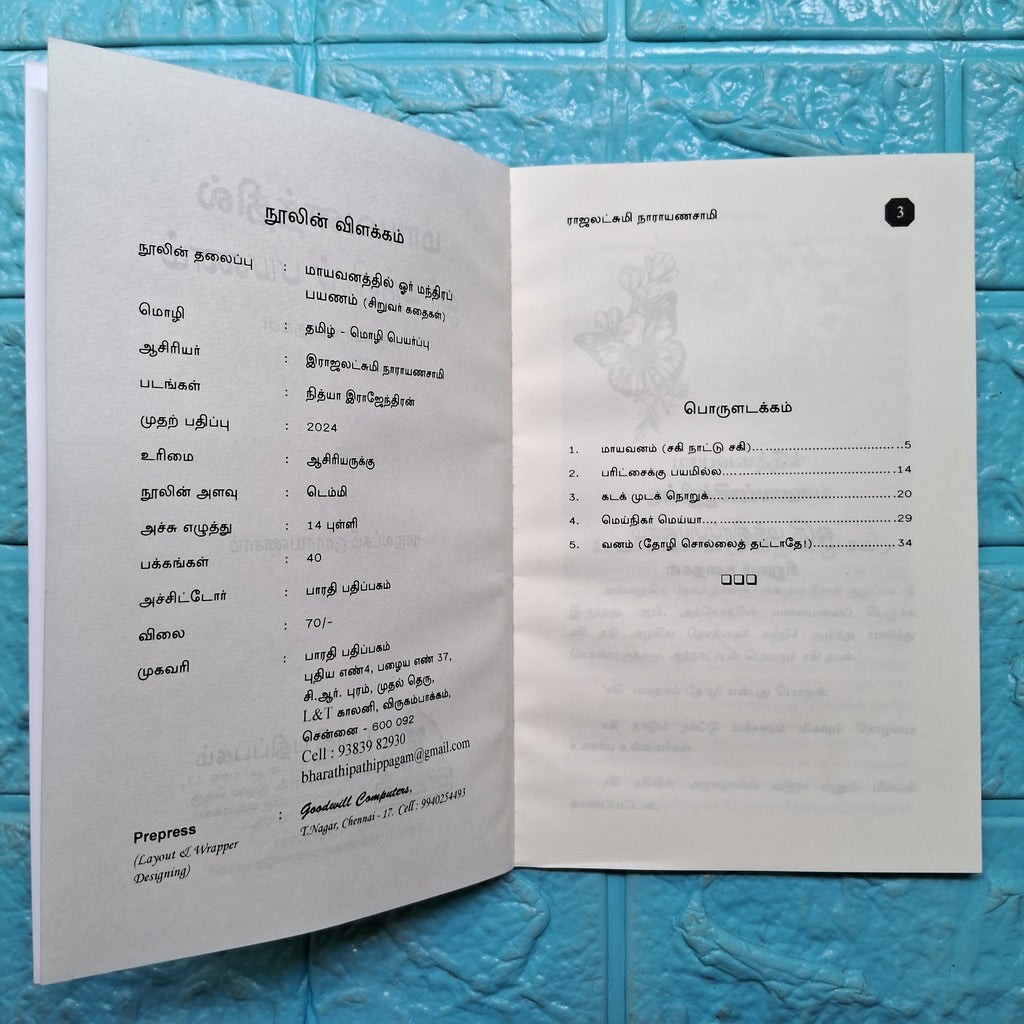 நூலின் விளக்கம்
நூலின் தலைப்பு : மாயவனத்தில் ஓர் மந்திரப்
பயணம் (சிறுவர் கதைகள்)
மொழி : தமிழ் - மொழி பெயர்ப்பு
ஆசிரியர் : இராஜலட்சுமி நாராயணசாமி
படங்கள் : நித்யா இராஜேந்திரன்
முதற் பதிப்பு : 2024
உரிமை : ஆசிரியருக்கு
நூலின் அளவு : டெம்மி
அச்சு எழுத்து : 14 புள்ளி
பக்கங்கள் : 40
அச்சிட்டோர் : பாரதி பதிப்பகம்
விலை : 70/-
முகவரி : பாரதி பதிப்பகம்
புதிய எண்4, பழைய எண் 37,
சி.ஆர். புரம், முதல் தெரு,
L&T காலனி, விருகம்பாக்கம்,
சென்னை - 600 092
Cell : 93839 82930
bharathipathippagam@gmail.com
Prepress : Goodwill Computers,
(Layout & Wrapper T.Nagar, Chennai - 17. Cell : 9940254493
Designing)
ராஜலட்சுமி நாராயணசாமி 3
பொருளடக்கம்
1. மாயவனம் (சகி நாட்டு சகி)..................................5
2. பரிட்சைக்கு பயமில்ல..........................................14
3. கடக் முடக் நொறுக்.............................................20
4. மெய்நிகர் மெய்யா...............................................29
5. வனம் (தோழி சொல்லைத் தட்டாதே!)....................34